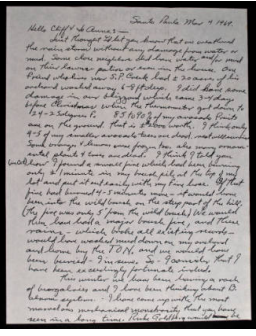 Santa Paula Mar 9 1969.
Hello Cliff & Anne:—
Just thought I'd let you know that we weathered
the main storms without any damage from water or
mud. Some close neighbors did have water &/or mud
on their houses
friend who lives near S.P. Creek had 2 acres of his
orchard washed away 4-8 ft deep. I did have some
damage in our
before Christmas when the thermometer got down to
24-25 degrees F. 85 to 90% of my avocado fruits
are on the ground. that is worth. I think only
4-5 of my smaller avocado trees are dead,
Some oranges & lemons were frozen too also many
plants & trees are dead. I think I told you
how I found a small fire which had been burning
only 5 minutes in my brush pile at the top of my
lot and put it out easily with my fire hose. If that
fire had burned 4-5 minutes more, it would have
been into the wild brush on the steep part of the hill.
(the fire was only 5 ft from the wild brush) and we would
then have had a major brush fire, and these
rains — which broke all existing records —
would have washed mud down on my orchard
and house by the TON, and we would have
been buried — I'm sure. So — I consider that I
have been exceedingly fortunate indeed.
This winter I have been having a rash
of and I have been thinking about
system. I have come up with the most
marvelous mechanical monstrosity that you have
seen in a long time. Rube Goldberg would